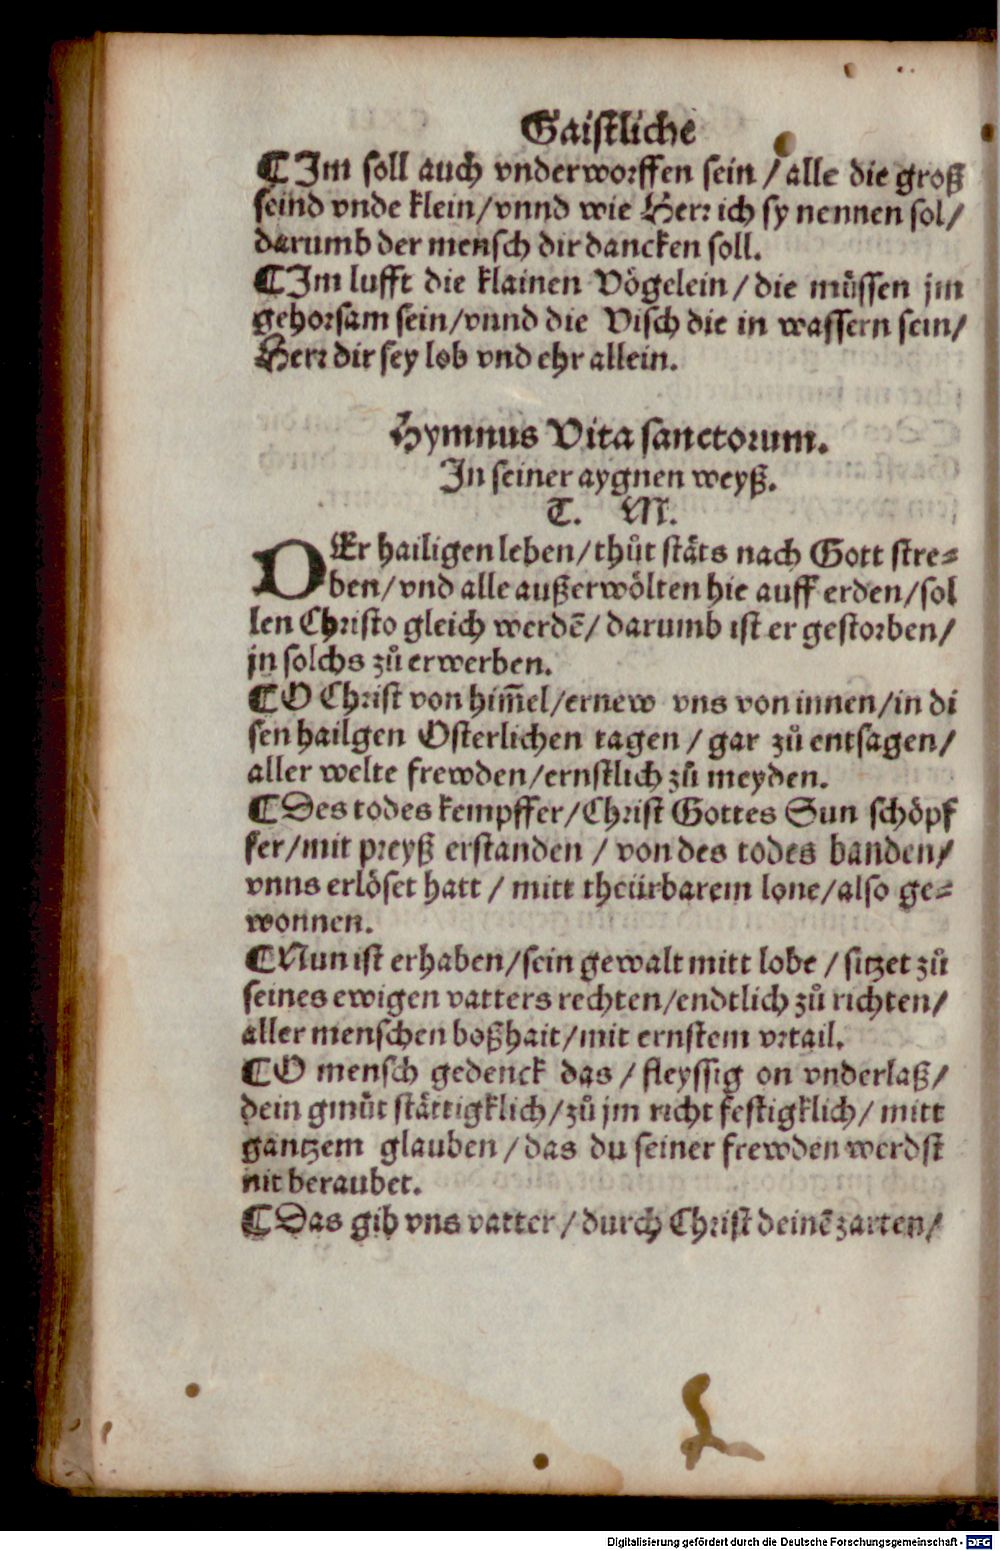 Gaistliche
¶Im soll auch vnderworffen sein / alle die groß
seind vnde klein/vnnd wie Herr ich sy nennen sol/
darumb der mensch dir dancken soll.
¶Im lufft die klainen Vögelein / die müssen jm
gehorsam sein/vnnd die Visch die in wassern sein/
Herr dir sey lob vnd ehr allein.
Hymnus Vita sanctorum.
In seiner aygnen weyß.
T. M.
DEr hailigen leben/thůt stäts nach Gott stre⸗
ben/vnd alle außerwölten hie auff erden/sol
len Christo gleich werdē/ darumb ist er gestorben/
jn solchs zů erwerben.
¶O Christ von him̄el/ernew vns von innen/in di
sen hailgen Osterlichen tagen / gar zů entsagen/
aller welte frewden/ernstlich zů meyden.
¶Des todes kempffer/Christ Gottes Sun schöpf
fer/mit preyß erstanden / von des todes banden/
vnns erlöset hatt / mitt theürbarem lone/also ge⸗
wonnen.
¶Nun ist erhaben/sein gewalt mitt lobe / sitzet zů
seines ewigen vatters rechten/endtlich zů richten/
aller menschen boßhait/mit ernstem vrtail.
¶O mensch gedenck das / fleyssig on vnderlaß/
dein gmůt stättigklich/zů jm richt festigklich/ mitt
gantzem glauben / das du seiner frewden werdst
nit beraubet.
¶Das gib vns vatter / durch Christ deinē zarten/
Digitalisierung gefördert durch die Deutsche Forschungsgemeinschaft - DFG